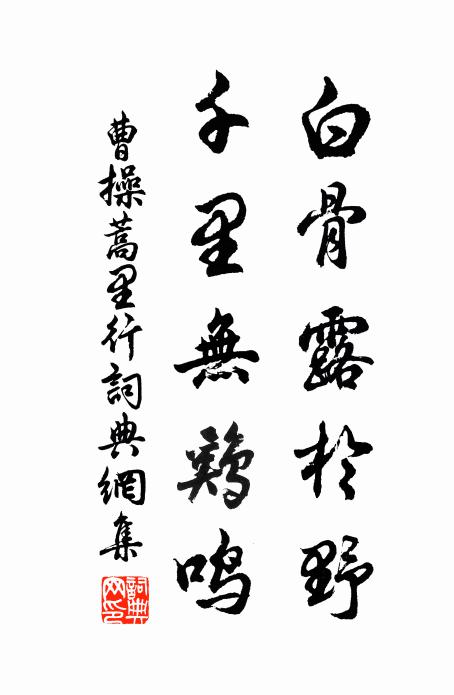 白骨露於野
千里無鷄鳴
曹操蒿里行詞典網集
詞典網印